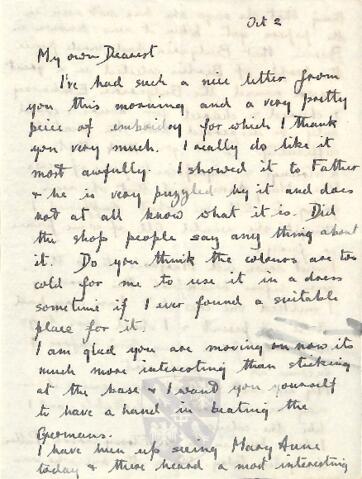 Oct 2
My own Dearest
I've had such a nice letter from
you this morning and a very pretty
peice of embroidery for which I thank
you very much. I really do like it
most awfully. I showed it to Father
& he is very puzzled by it and does
not at all know what it is. Did
the shop people say any thing about
it. Do you think the colours are too
cold for me to use it in a dress
sometime if I ever found a suitable
place for it.
I am glad you are moving on now its
much more interesting than sticking
at the base & I want you yourself
to have a hand in beating the
Germans.
I have been up seeing Mary Anne
today & there heard a most interesting